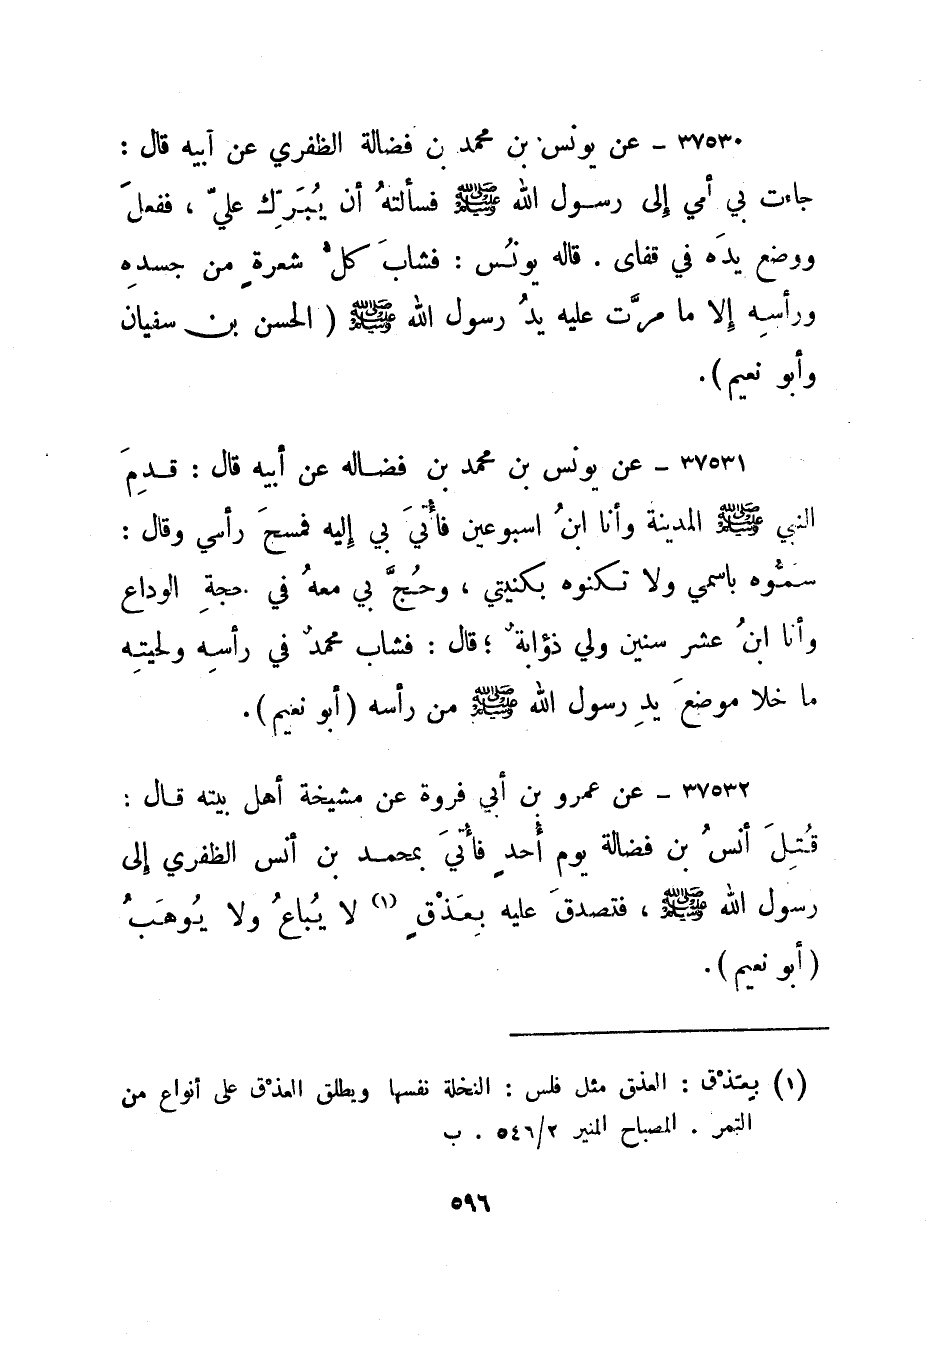 ٣٧٥٣٠ - عن يونس بن محمد بن فضالة الظفري عن آبيه قال :
جاءت بي أمي إلى رسول الله ﷺ فسألتهُ أن يُبَرِّك عليّ ، ففعلَ
ووضع يدَه في قفاى . قاله يونُس : فشابَ كلُّ شعرةٍ من جسدهِ
ورأسِه إلا ما مرَّت عليه يدُ رسول الله ﷺ ( الحسن بن سفيان
وأبو نعيم ) .
٣٧٥٣١ - عن يونس بن محمد بن فضاله عن أبيه قال : قدِمَ
النبي ﷺ المدينة وأنا ابنُ اسبوعين فأُتيَ بي إليه فمسحَ رأسي وقال :
سَمُّوه باسمي ولا تكنوه بكنيتي ، وحُجَّ بي معهُ في حجةِ الوداع
وأنا ابنُ عشر سنين ولي ذؤابةٌ ؛ قال : فشاب محمدٌ في رأسِه ولحيتِه
ما خلا موضعَ يدِ رسول الله ﷺ من رأسه ( أبو نعيم ) .
٣٧٥٣٢ - عن عمرو بن أبي فروة عن مشيخة أهل بيته قال :
قُتِلَ أنسُ بن فضالة يوم أُحدٍ فأُتيَ بمحمد بن أنس الظفري إلى
رسول الله ﷺ ، فتصدقَ عليه بِعَذْقٍ (١) لا يُباعُ ولا يُوهَبُ
( أبو نعيم ) .
(١) بِعَذْق : العذق مثل فلس : النخلة نفسها ويطلق العذْق على أنواع من
التمر . المصباح المنير ٥٤٦/٢ . ب
٥٩٦